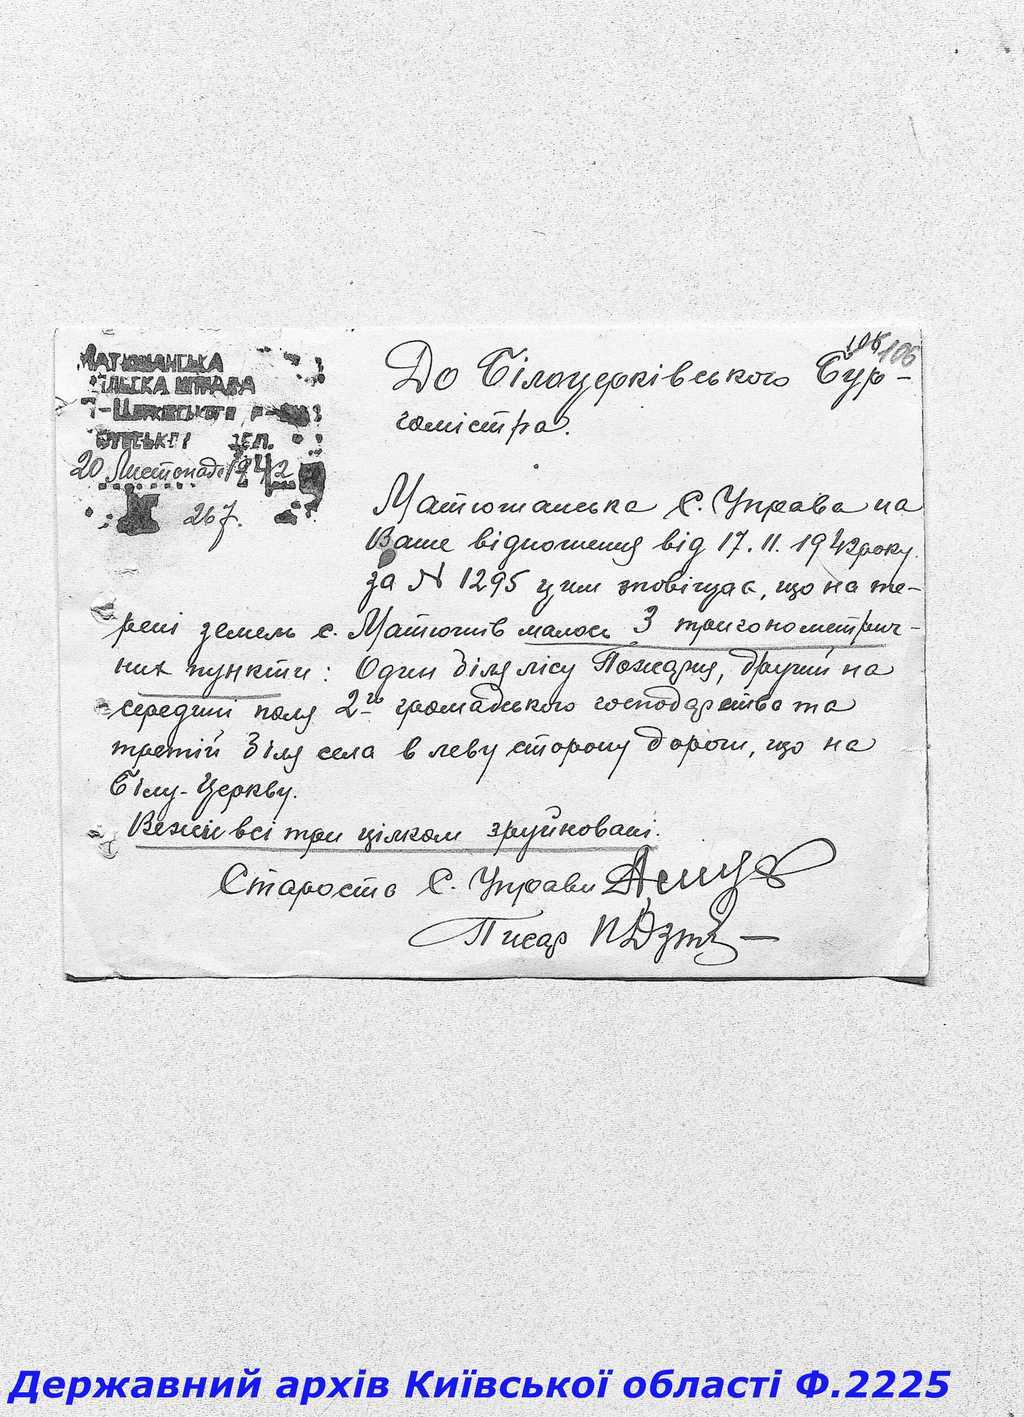 106 106
МАТЮШАНСЬКА
СІЛЬСКА УПРАВА
Б-ЦЕРКІВСЬКОГО р-
20 Листопада 1942
№ 267.
До Білоцерківського Бур-
гомістра.
Матюшанська С. Управа на
Ваше відношення від 17. 11. 1942 року.
за № 1295 цим сповіщає, що на те-
рені земель с. Матюшів малось 3 тригонометрич-
них пункти: Один біля лісу Пожарня, другий на
середині поля 2-го громадського господарства та
третій біля села в леву сторону дороги, що на
Білу-Церкву.
Вежи всі три цілком зруйновані.
Староста С. Управи
Писар
Державний архів Київської області Ф.2225